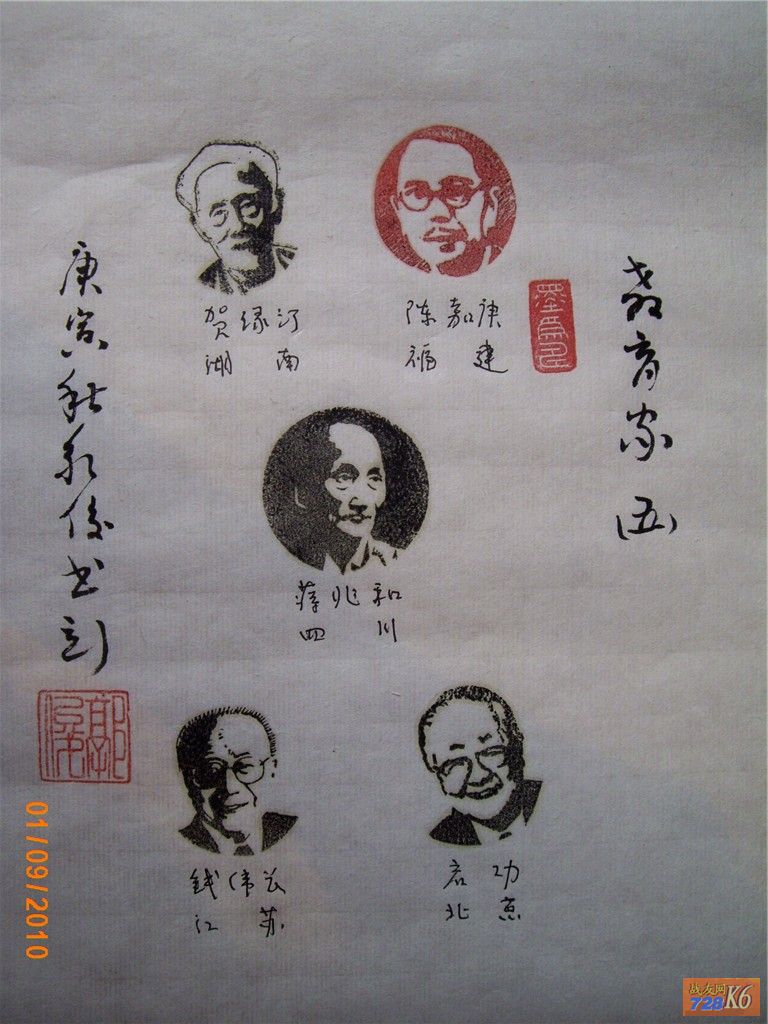 教育家(五)
贺绿汀
湖南
陈嘉庚
福建
蒋兆和
四川
钱伟长
江苏
启功
北京
庚寅秋永俊书刻
01/09/2010
战友网
728K6